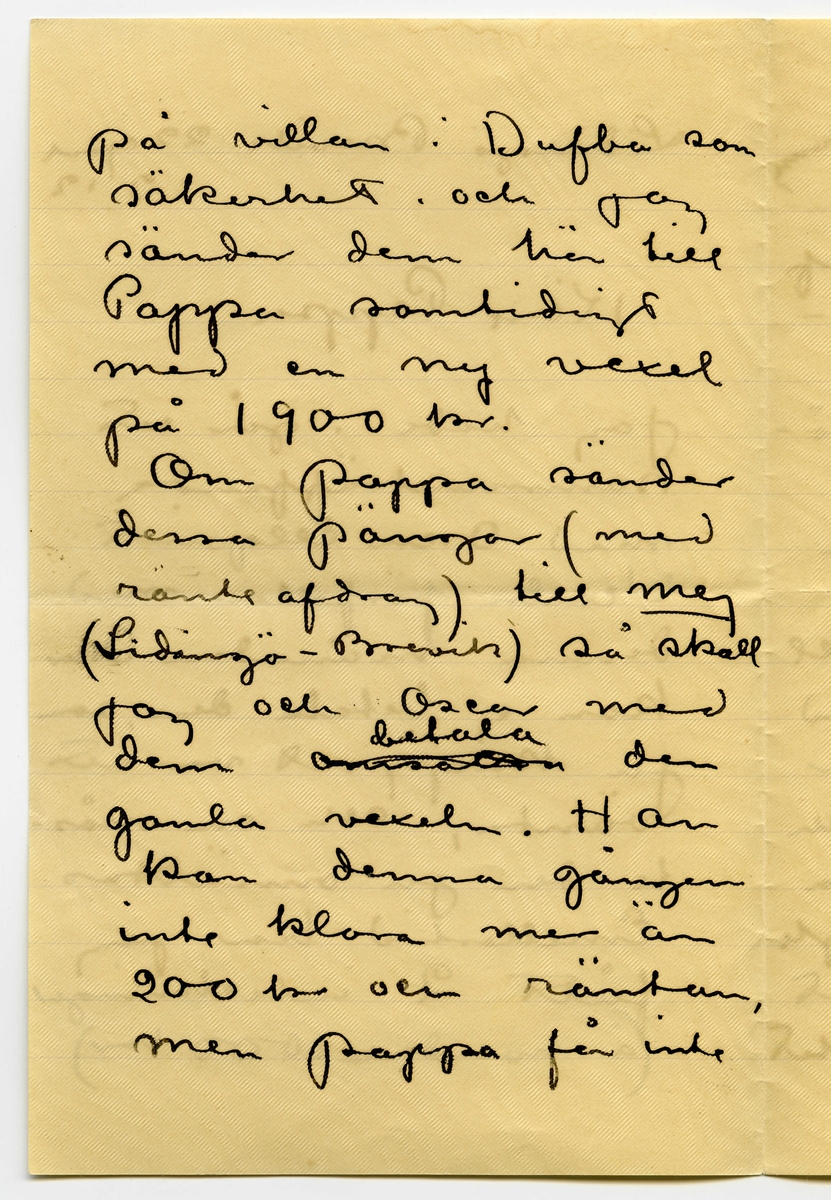 på villan i Dufbo som
säkerhet. och jag
sänder dem här till
Pappa samtidigt
med en ny vexel
på 1900 kr.
Om pappa sänder
dessa pängar (med
ränteafdrag) till mej
(Lidingö-Brevik) så skall
jag och Oscar med
betala
dem omsätta den
gamla vexeln. Han
kan denna gången
inte klara mer än
200 kr och räntan,
men pappa får inte